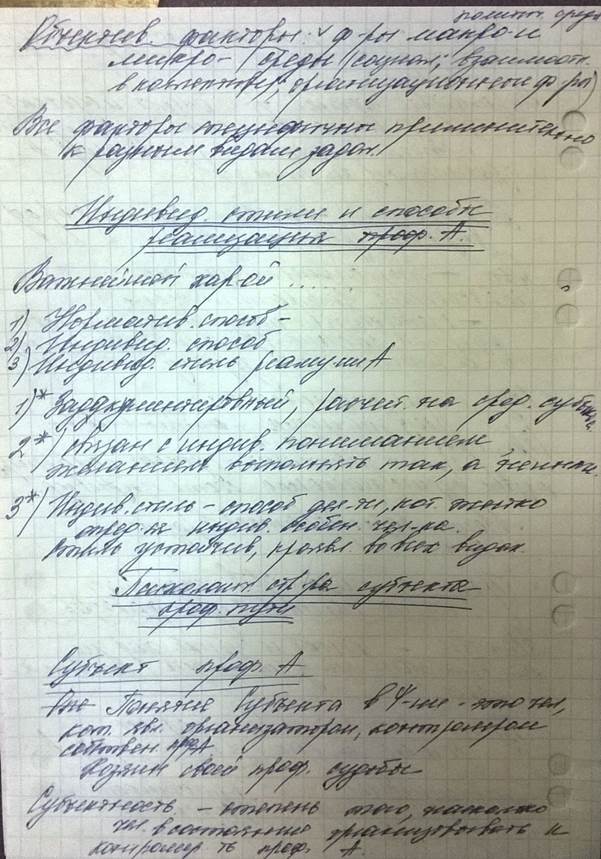 политич. среды
Объектив. факторы: ф-ры макро- и
микро- среды (социал., взаимоот.
в коллективе, организационные ф-ры)
Все факторы специфичны применительно
к разным видам задач.
Индивид. стили и способы
реализации проф. А.
Важнейшей хар-ой ......
1) Норматив. способ -
2) Индивид. способ
3) Индивид. стиль реализации А
1)* Задокументированный, расчит. на сред. субъек.
2*) связан с индив. пониманием,
желанием выполнять так, а не иначе.
3*) Индив. стиль - способ деят-ти, кот. жестко
опред-ся индив. особен. чел-ка.
Стиль устойчив, проявл. во всех видах
Психологич. стр-ра субъекта
проф. пути
Субъект проф. А
Понятие Субъекта в Ψ-гии - это чел,
кот. явл. организатором, контролером
собствен. проф. А
Хозяин своей проф. судьбы
Субъектность - степень того, насколько
чел. в состоянии организовывать и
контролир-ть проф. А.